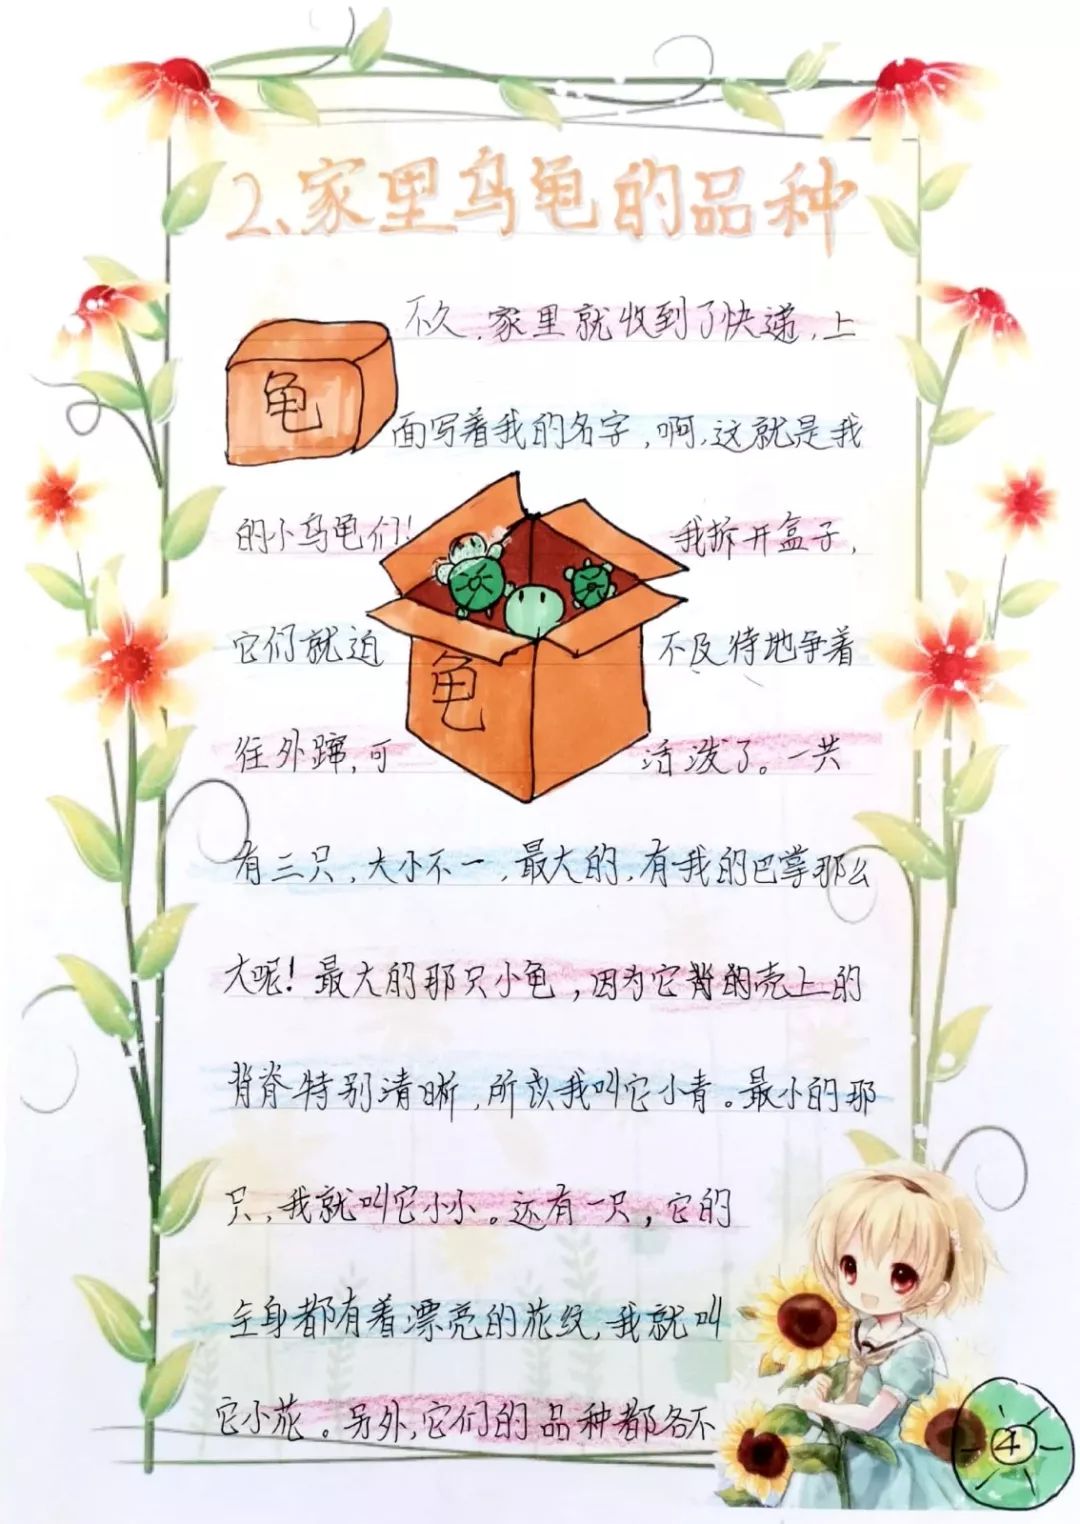 2、家里乌龟的品种
不久,家里就收到了快递,上
龟
面写着我的名字,啊,这就是我
的小乌龟们! 我拆开盒子,
它们就迫 不及待地争着
龟
往外蹿,可 活泼了。一共
有三只,大小不一,最大的,有我的巴掌那么
大呢!最大的那只小龟,因为它背的壳上的
背脊特别清晰,所以我叫它小青。最小的那
只,我就叫它小小。还有一只,它的
全身都有着漂亮的花纹,我就叫
它小花。另外,它们的品种都各不
4